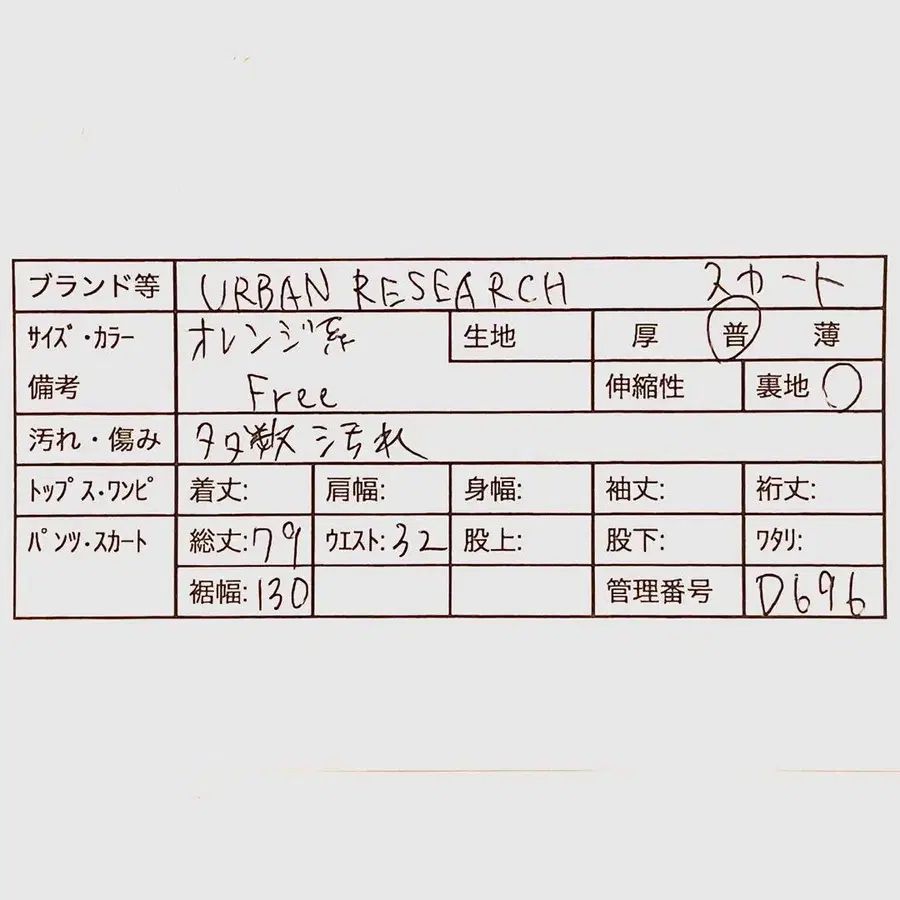 ブランド等 URBAN RESEARCH スカート
ｻｲｽﾞ・ｶﾗｰ オレンジ系 生地 厚 普 薄
備考 Free 伸縮性 裏地 ○
汚れ・傷み 多数汚れ
ﾄｯﾌﾟｽ・ﾜﾝﾋﾟ 着丈: 肩幅: 身幅: 袖丈: 裄丈:
ﾊﾟﾝﾂ・ｽｶｰﾄ 総丈:79 ｳｴｽﾄ:32 股上: 股下: ﾜﾀﾘ:
裾幅:130 管理番号 D696